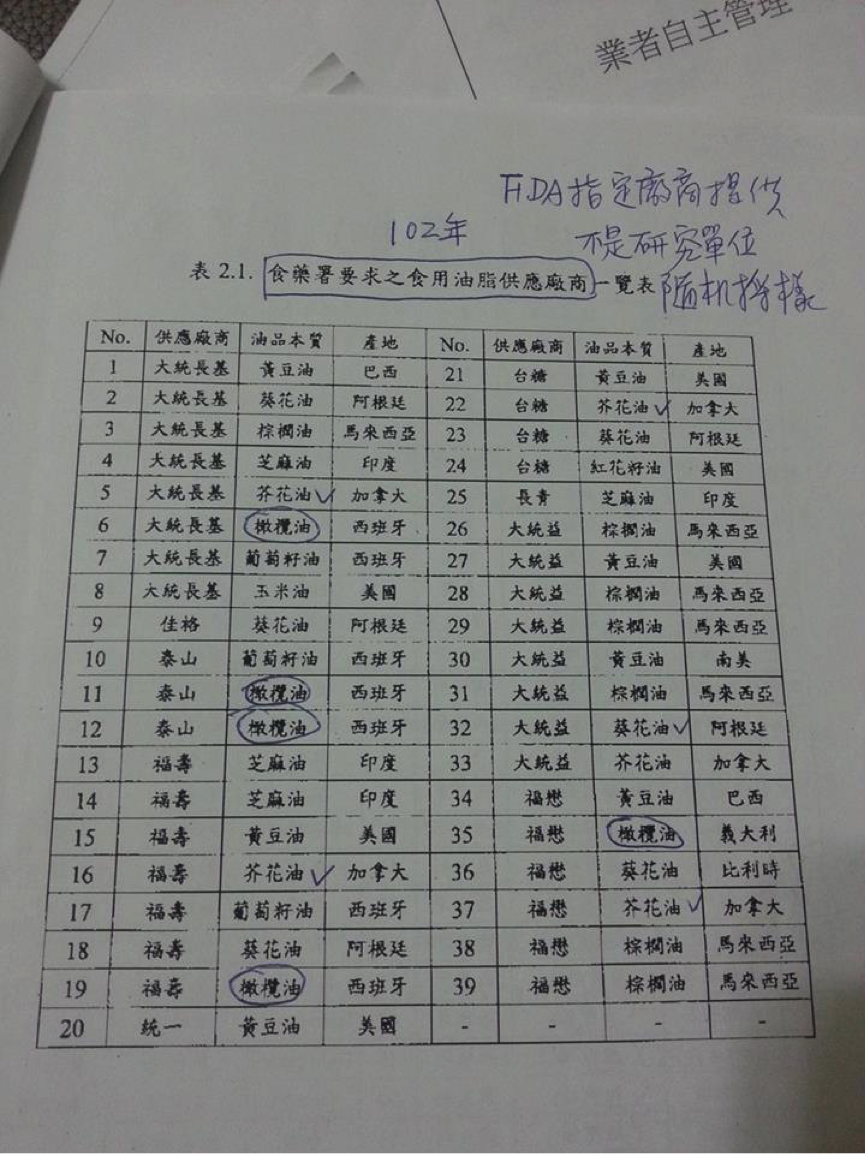 業者自主管理
FDA指定廠商提供
102年
不是研究單位
表 2.1. 食藥署要求之食用油脂供應廠商一覽表
隨机抽樣
No. 供應廠商 油品本質 產地 No. 供應廠商 油品本質 產地
1 大統長基 黃豆油 巴西 21 台糖 黃豆油 美國
2 大統長基 葵花油 阿根廷 22 台糖 芥花油 加拿大
3 大統長基 棕櫚油 馬來西亞 23 台糖 葵花油 阿根廷
4 大統長基 芝麻油 印度 24 台糖 紅花籽油 美國
5 大統長基 芥花油 加拿大 25 長青 芝麻油 印度
6 大統長基 橄欖油 西班牙 26 大統益 棕櫚油 馬來西亞
7 大統長基 葡萄籽油 西班牙 27 大統益 黃豆油 美國
8 大統長基 玉米油 美國 28 大統益 棕櫚油 馬來西亞
9 佳格 葵花油 阿根廷 29 大統益 棕櫚油 馬來西亞
10 泰山 葡萄籽油 西班牙 30 大統益 黃豆油 南美
11 泰山 橄欖油 西班牙 31 大統益 棕櫚油 馬來西亞
12 泰山 橄欖油 西班牙 32 大統益 葵花油 阿根廷
13 福壽 芝麻油 印度 33 大統益 芥花油 加拿大
14 福壽 芝麻油 印度 34 福懋 黃豆油 巴西
15 福壽 黃豆油 美國 35 福懋 橄欖油 義大利
16 福壽 芥花油 加拿大 36 福懋 葵花油 比利時
17 福壽 葡萄籽油 西班牙 37 福懋 芥花油 加拿大
18 福壽 葵花油 阿根廷 38 福懋 棕櫚油 馬來西亞
19 福壽 橄欖油 西班牙 39 福懋 棕櫚油 馬來西亞
20 統一 黃豆油 美國 - - - -